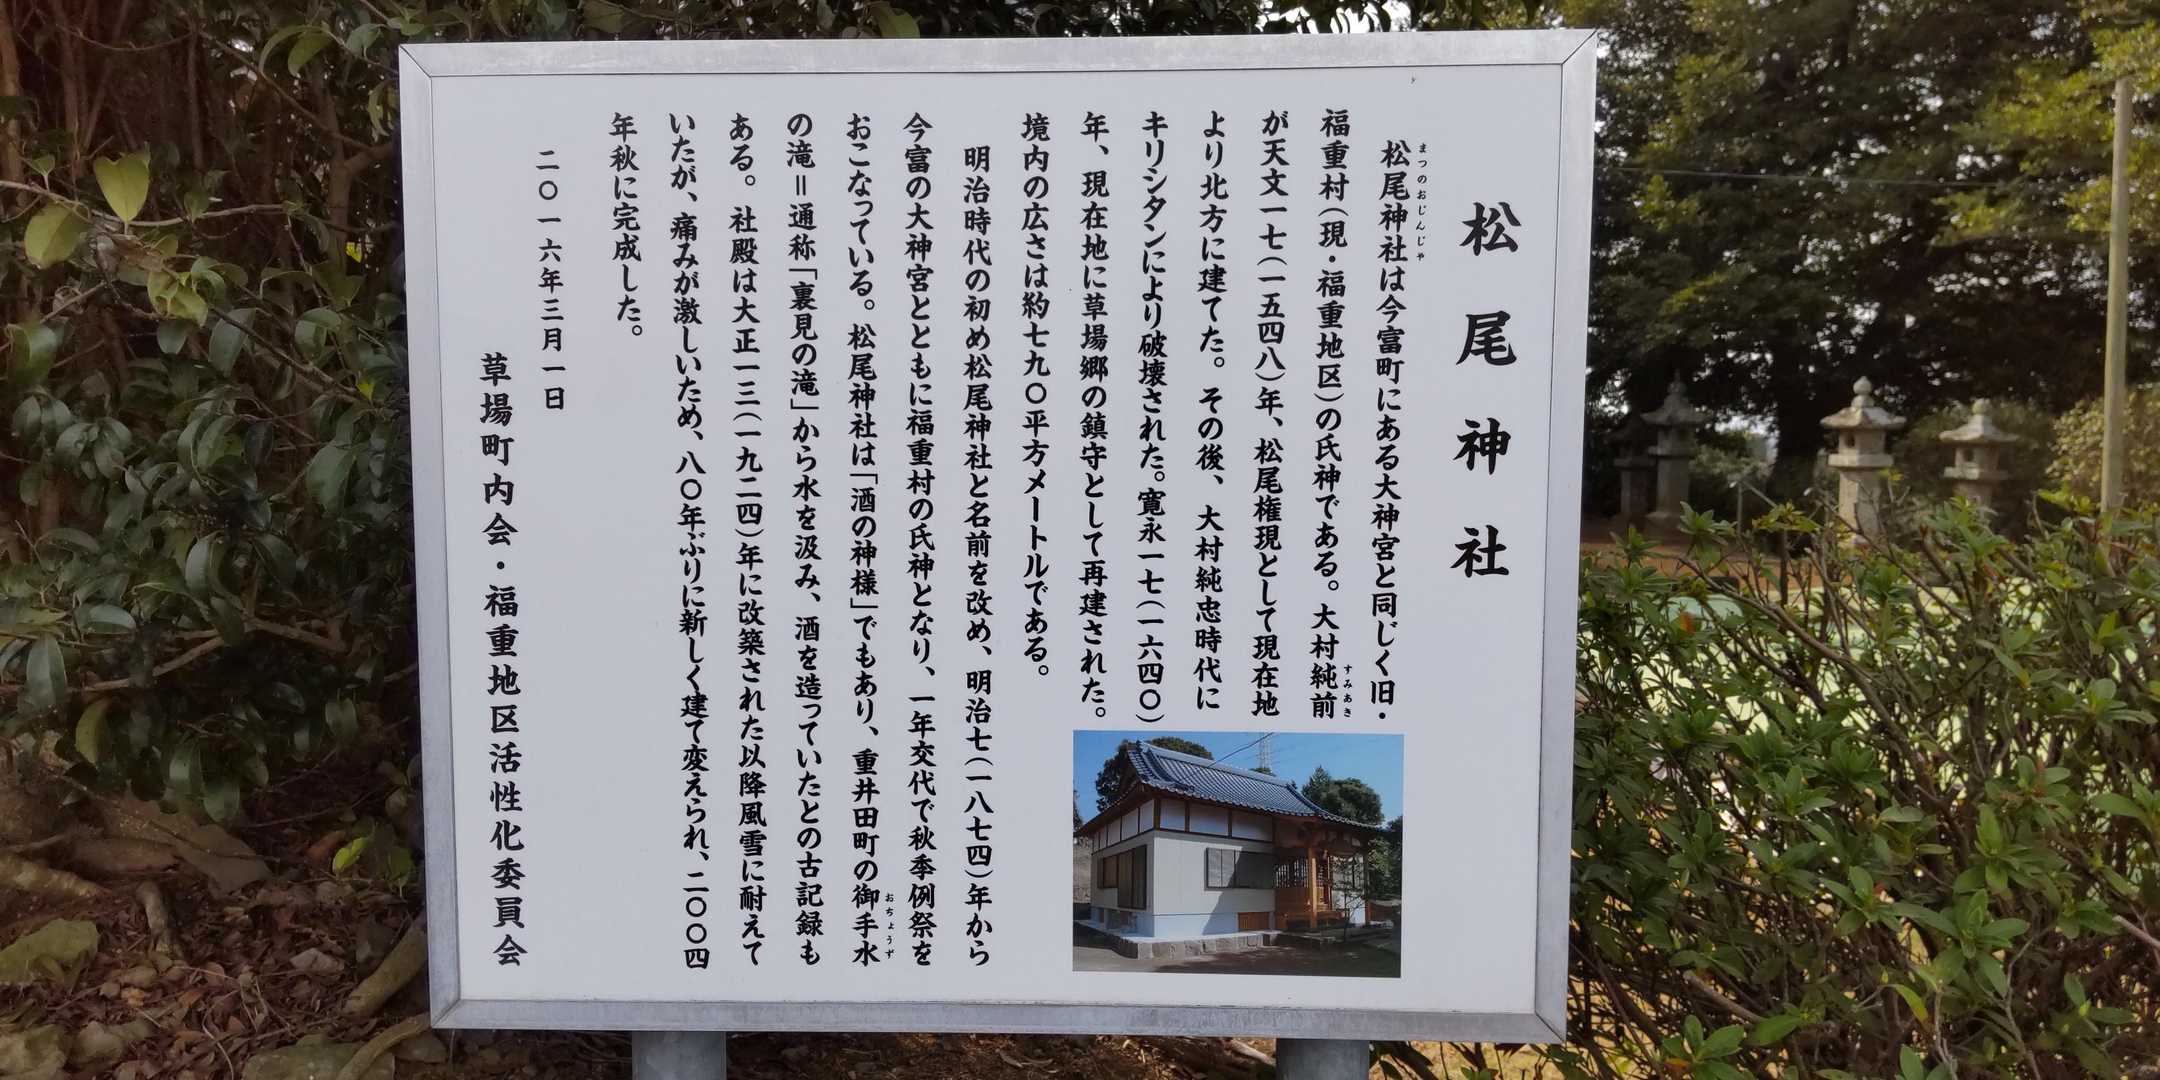 松尾神社
まつのおじんじゃ
松尾神社は今富町にある大神宮と同じく旧・
福重村(現・福重地区)の氏神である。大村純前
すみあき
が天文一七(一五四八)年、松尾権現として現在地
より北方に建てた。その後、大村純忠時代に
キリシタンにより破壊された。寛永一七(一六四〇)
年、現在地に草場郷の鎮守として再建された。
境内の広さは約七九〇平方メートルである。
明治時代の初め松尾神社と名前を改め、明治七(一八七四)年から
今富の大神宮とともに福重村の氏神となり、一年交代で秋季例祭を
おこなっている。松尾神社は「酒の神様」でもあり、重井田町の御手水
おちょうず
の滝=通称「裏見の滝」から水を汲み、酒を造っていたとの古記録も
ある。社殿は大正一三(一九二四)年に改築された以降風雪に耐えて
いたが、痛みが激しいため、八〇年ぶりに新しく建て変えられ、二〇〇四
年秋に完成した。
二〇一六年三月一日
草場町内会・福重地区活性化委員会